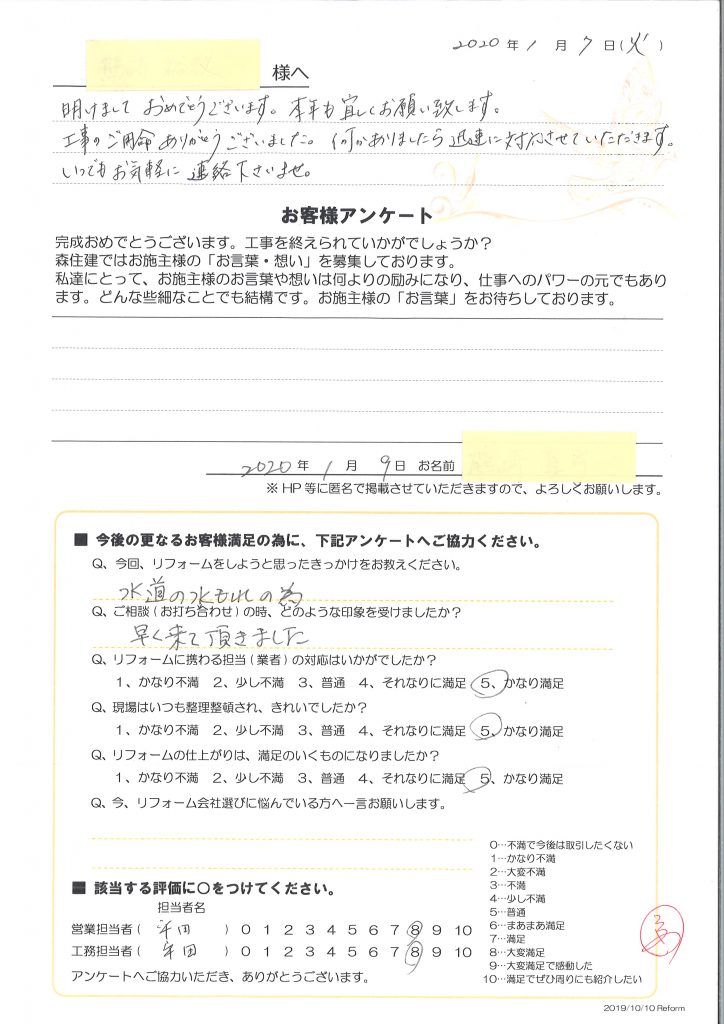 2020 年 1 月 7 日(火)
様へ
明けまして おめでとうございます。本年も宜しくお願い致します。
工事のご用命ありがとうございました。何かありましたら迅速に対応させていただきます。
いつでもお気軽に 連絡下さいませ。
お客様アンケート
完成おめでとうございます。工事を終えられていかがでしょうか?
森住建ではお施主様の「お言葉・想い」を募集しております。
私達にとって、お施主様のお言葉や想いは何よりの励みになり、仕事へのパワーの元でもあり
ます。どんな些細なことでも結構です。お施主様の「お言葉」をお待ちしております。
2020 年 1 月 9 日 お名前
※ HP 等に匿名で掲載させていただきますので、よろしくお願いします。
■ 今後の更なるお客様満足の為に、下記アンケートへご協力ください。
Q、今回、リフォームをしようと思ったきっかけをお教えください。
水道の水もれの為
Q、ご相談(お打ち合わせ)の時、どのような印象を受けましたか?
早く来て頂きました
Q、リフォームに携わる担当(業者)の対応はいかがでしたか?
1、かなり不満 2、少し不満 3、普通 4、それなりに満足 5、かなり満足
Q、現場はいつも整理整頓され、きれいでしたか?
1、かなり不満 2、少し不満 3、普通 4、それなりに満足 5、かなり満足
Q、リフォームの仕上がりは、満足のいくものになりましたか?
1、かなり不満 2、少し不満 3、普通 4、それなりに満足 5、かなり満足
Q、今、リフォーム会社選びに悩んでいる方へ一言お願いします。
0…不満で今後は取引したくない
1…かなり不満
2…大変不満
3…不満
4…少し不満
5…普通
6…まあまあ満足
7…満足
8…大変満足
9…大変満足で感動した
10…満足でぜひ周りにも紹介したい
■ 該当する評価に○をつけてください。
担当者名
営業担当者( 田 ) 0 1 2 3 4 5 6 7 8 9 10
工務担当者( 田 ) 0 1 2 3 4 5 6 7 8 9 10
アンケートへご協力いただき、ありがとうございます。
2019/10/10 Reform